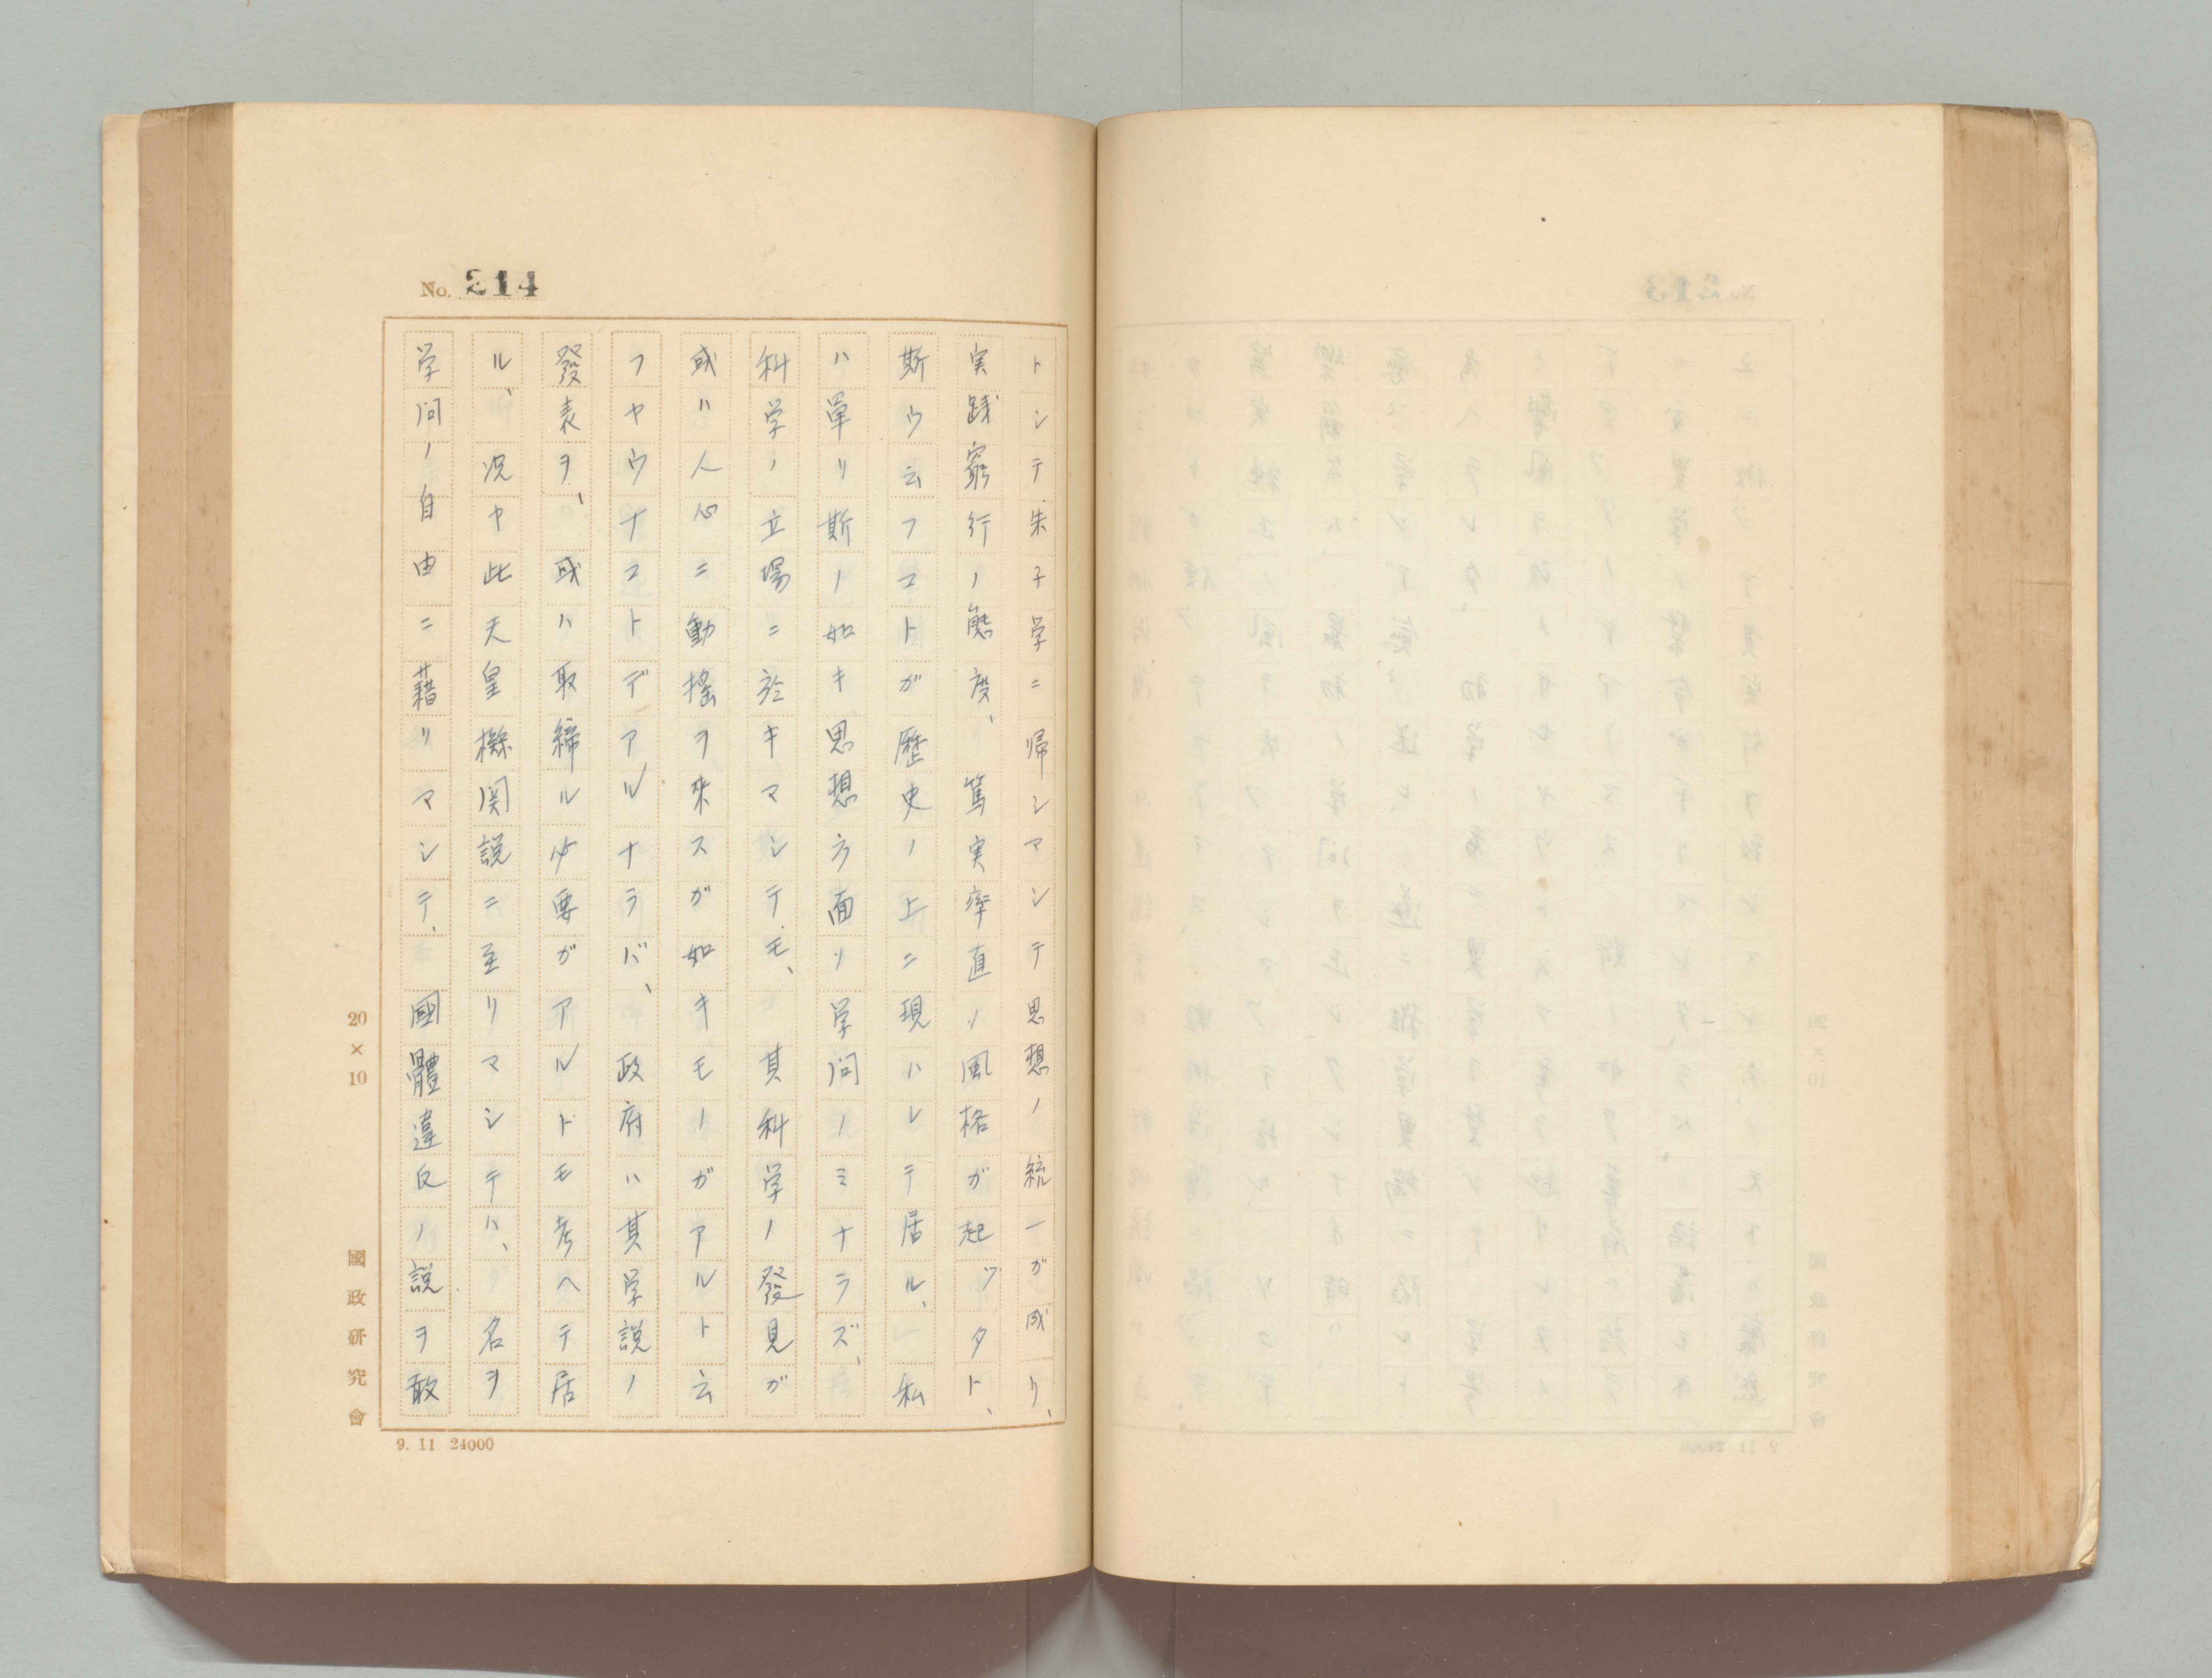 No. 214
トシテ朱子学ニ帰シマシテ思想ノ統一ガ成リ、
実践窮行ノ態度、篤実率直ノ風格ガ起ツタト、
斯ウ云フコトガ歴史ノ上ニ現ハレテ居ル、私
ハ單リ斯ノ如キ思想方面ソ学問ノミナラズ、
科学ノ立場ニ於キマシテモ、其科学ノ發見ガ
或ハ人心ニ動搖ヲ來スガ如キモノガアルト云
フヤウナコトデアルナラバ、政府ハ其学説ノ
發表ヲ、或ハ取締ル必要ガアルトモ考ヘテ居
ル、况ヤ此天皇機関説ニ至リマシテハ、名ヲ
学問ノ自由ニ藉リマシテ、國體違反ノ説ヲ敢
20×10
國政研究會
9. 11 24000